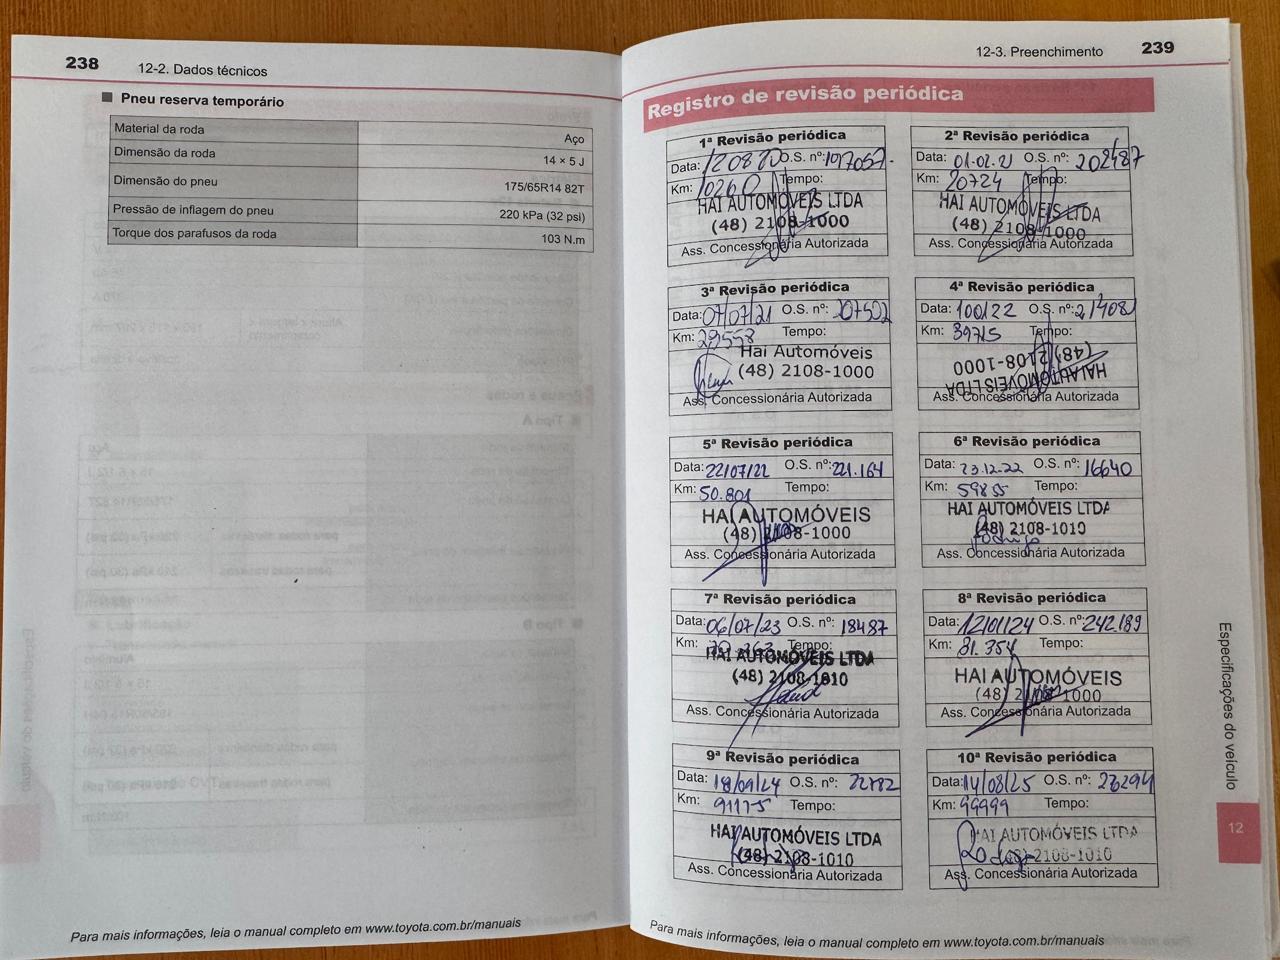 238 12-2. Dados técnicos
■ Pneu reserva temporário
Material da roda Aço
Dimensão da roda 14 × 5 J
Dimensão do pneu 175/65R14 82T
Pressão de inflagem do pneu 220 kPa (32 psi)
Torque dos parafusos da roda 103 N.m
Para mais informações, leia o manual completo em www.toyota.com.br/manuais
12-3. Preenchimento 239
Registro de revisão periódica
1ª Revisão periódica
Data: O.S. nº:
Km: 10260 Tempo:
HAI AUTOMÓVEIS LTDA
(48) 2108-1000
Ass. Concessionária Autorizada
2ª Revisão periódica
Data: 01.02.21 O.S. nº: 202487
Km: 20724 Tempo:
HAI AUTOMÓVEIS LTDA
(48) 2108-1000
Ass. Concessionária Autorizada
3ª Revisão periódica
Data: 07/07/21 O.S. nº: 207502
Km: 29558 Tempo:
Hai Automóveis
(48) 2108-1000
Ass. Concessionária Autorizada
4ª Revisão periódica
Data: O.S. nº:
Km: 39715 Tempo:
(48) 2108-1000
HAI AUTOMÓVEIS LTDA
Ass. Concessionária Autorizada
5ª Revisão periódica
Data: 22/07/22 O.S. nº: 221.164
Km: 50.801 Tempo:
HAI AUTOMÓVEIS
(48) 2108-1000
Ass. Concessionária Autorizada
6ª Revisão periódica
Data: 23.12.22 O.S. nº: 16640
Km: 59855 Tempo:
HAI AUTOMÓVEIS LTDA
(48) 2108-1010
Ass. Concessionária Autorizada
7ª Revisão periódica
Data: 06/07/23 O.S. nº: 18487
Km: Tempo:
HAI AUTOMÓVEIS LTDA
(48) 2108-1010
Ass. Concessionária Autorizada
8ª Revisão periódica
Data: 12/01/24 O.S. nº: 242.189
Km: 81.354 Tempo:
HAI AUTOMÓVEIS
(48) 2108-1000
Ass. Concessionária Autorizada
9ª Revisão periódica
Data: 18/09/24 O.S. nº: 22782
Km: 91175 Tempo:
HAI AUTOMÓVEIS LTDA
(48) 2108-1010
Ass. Concessionária Autorizada
10ª Revisão periódica
Data: 14/08/25 O.S. nº: 26294
Km: 99999 Tempo:
HAI AUTOMÓVEIS LTDA
(48) 2108-1010
Ass. Concessionária Autorizada
Especificações do veículo
12
Para mais informações, leia o manual completo em www.toyota.com.br/manuais